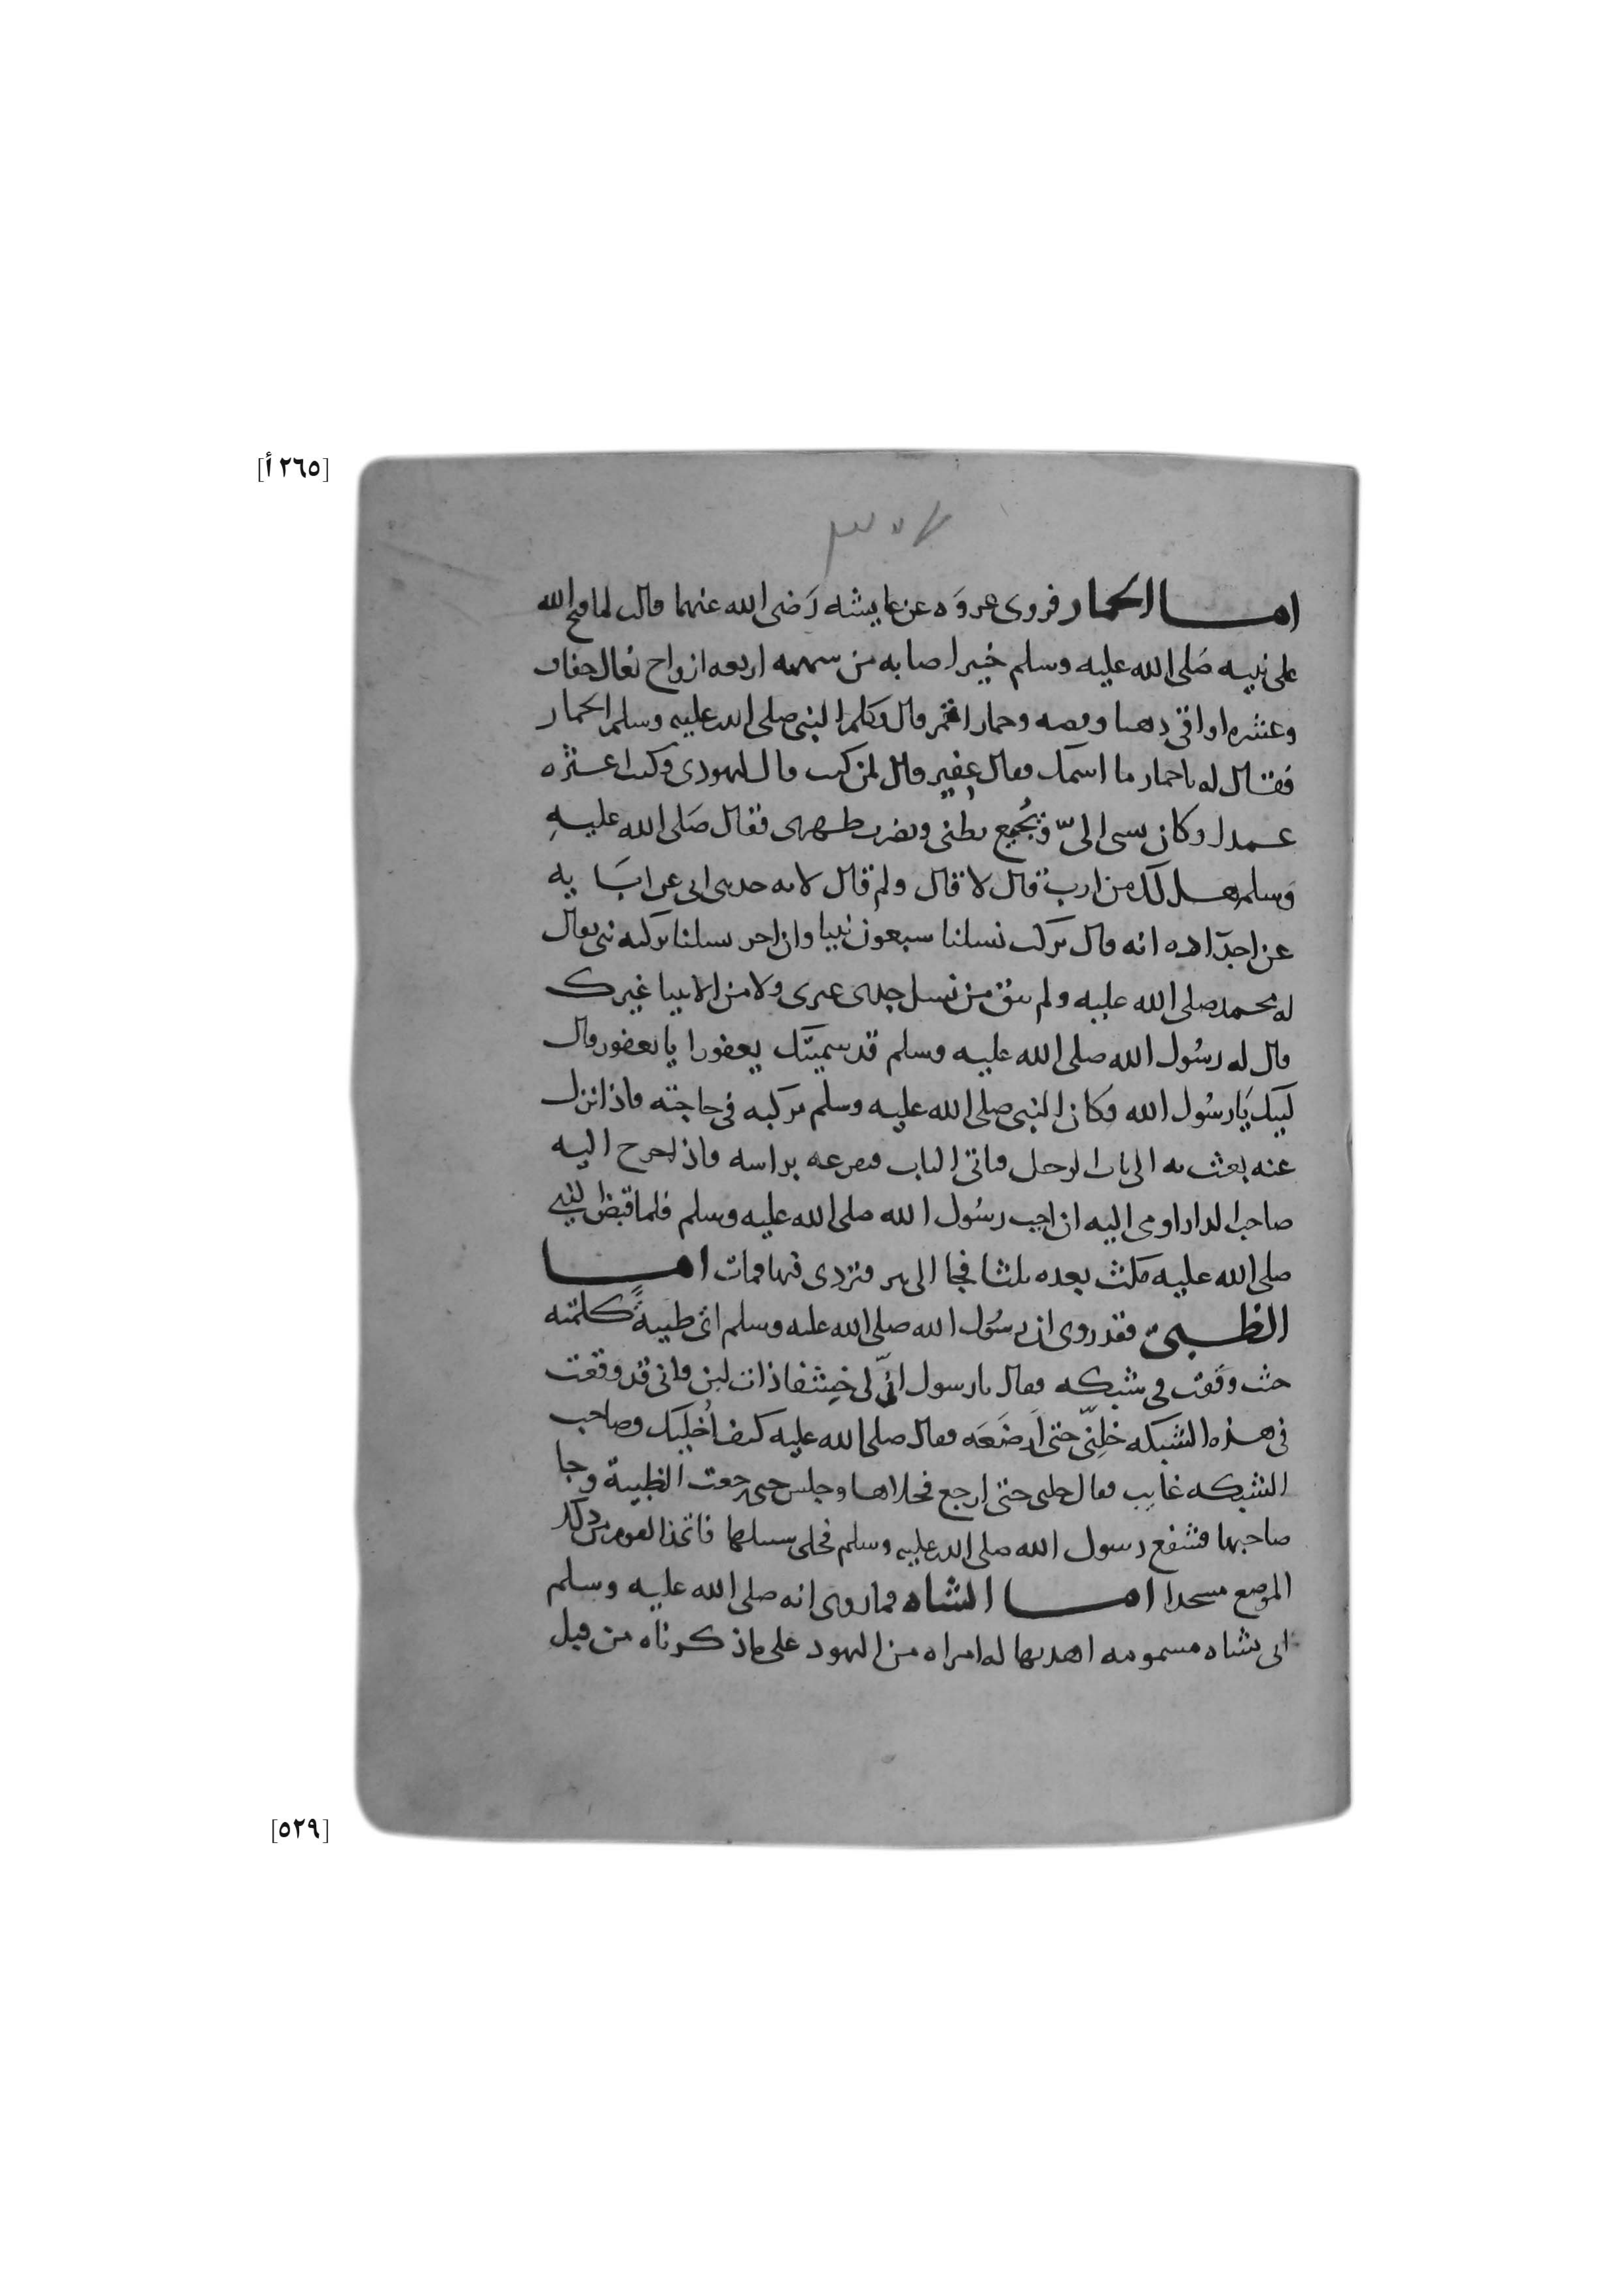 [٢٦٥ أ]
امـــا الحمار فروى عروَه عن عايشه رَضى الله عنهما قالت لما فتح الله
على نبيه صَلى الله عليه وسلم خيبر اصابه من سهمه اربعه ازواج نعال خفاف
وعشره اواقى دهب وفضه وحمار اقمر قال وكلم النبى صلى الله عليه وسلم الحمار
فقال له يا حمار ما اسمك فقال عفير قال لمن كنت قال ليهودى وكنت اعـثره
عـمدا وكان يسى الىّ ويُجيع بطنى ويضرب ظهرى فقال صَلى الله عليهِ
وَسلم هـل لك من ارب قال لا قال ولم قال لانه حدثنى ابى عن ابَايه
عن اجداده انه قال يركب نسلنا سبعون نبيا وان اخر نسلنا يركبه نبى يقال
له محمد صلى الله عليه ولم يبق من نسل جدى غيرى ولا من الانبيا غيرك
قال له رسُول الله صلى الله عليه وسلم قد سميتك يعفورا يا يعفور قال
لبيك يَا رسُول الله وكان النبى صلى الله عليه وسلم يركبه فى حاجته فاذا نزل
عنه بعث به الى باب الرجل فياتى الباب فيقرعه براسه فاذا خرج اليه
صاحب الدار اومى اليه ان اجب رسُول الله صلى الله عليه وسلم فلما قبض النبى
صلى الله عليه مكث بعده ثلثا فجا الى بير فتردى فيها فمات امـــا
الظـبى فقد روى ان رسُول الله صلى الله عليه وسلم اتى ظبيةً كلمته
حيث وقَعَت فى شبكه فقال يا رسول انّ لى خِشفا ذات لبن وانى قد وقعت
فى هذه الشبكه خلِنّى حتى اَرضَعَه فقال صلى الله عليه كيف اُخليك وصاحب
الشبكه غايب فقال خلنى حتى ارجع فخلاها وجلس حتى رجعت الظبية وجا
صاحبها فشفع رسول الله صلى الله عليه وسلم فخلى سبيلها فاتخذ القوم من ذلك
الموضع مسجدا امـــا الشاه فما روى انه صلى الله عليه وسلم
اتى بشاه مسمومه اهدتها له امراه من اليهود على ما ذكرناه من قبل
[٥٢٩]